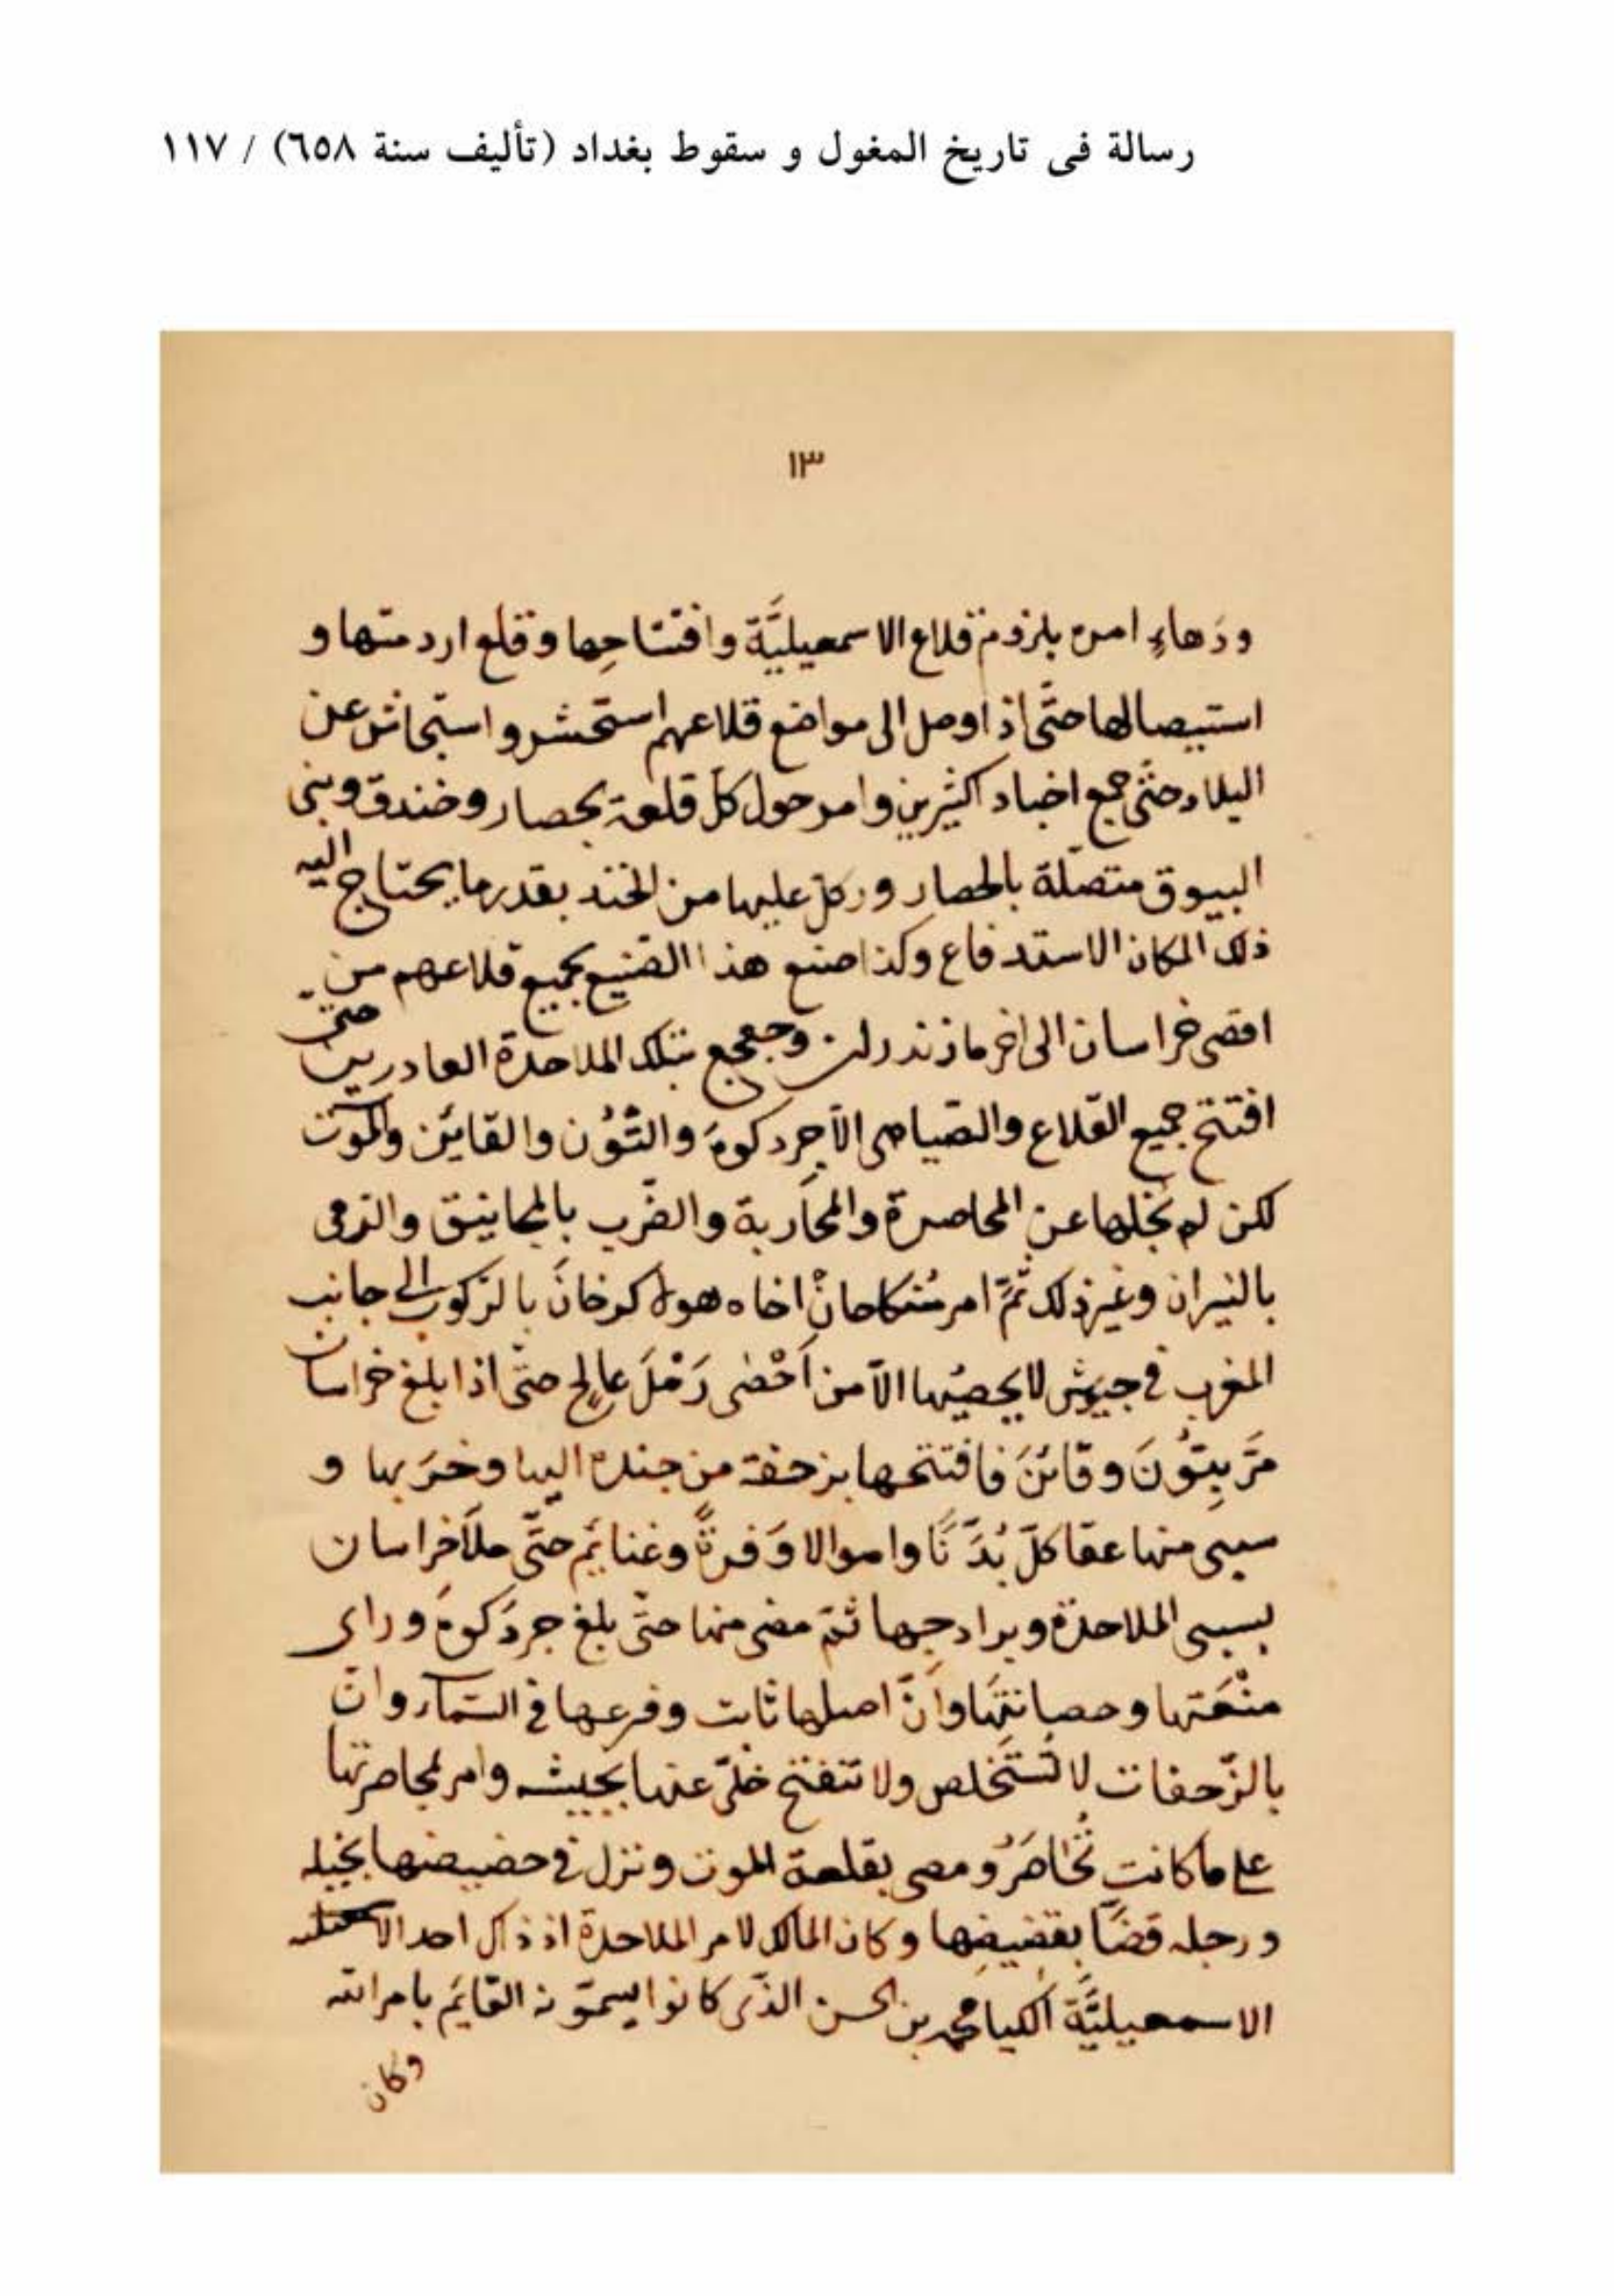 رسالة فى تاريخ المغول و سقوط بغداد (تأليف سنة ٦٥٨) / ١١٧
١٣
ودَهاءٍ امره بلزوم قلاع الاسمعيليَّة وافتتاحِها وقلع اردمتها و
استيصالها حتَّى اذا وصل الى مواضع قلاعهم استحشر واستجاش عن
البلاد حتَّى جمع اخباد كثيرين وامر حول كلّ قلعة بحصار وخندق وبنى
البيوق متصلة بالحصار وركل عليها من الخند بقدر ما يحتاج اليه
ذلك المكان الاستدفاع وكذا صنع هذا الصنيع بجميع قلاعهم من
اقصى خراسان الى اخر ماذندران وجعجع بتلك الملاحدة الغادرين حتى
افتتح جميع القلاع والصّياصى الّا جردكوه والتُّوُن والقايَن والموت
لكن لم يُخلها عن المحاصرة والمحاربة والضّرب بالمجانيق والرّمى
بالنيران وغير ذلك ثُمَّ امر مُنكاخانْ اخاه هولاكوخانَ بالرّكوب الى جانب
المغرب فى جيوش لا يحصيُها الّا من اَحْصٰى رَمْلَ عالج حتّى اذا بلغ خراسان
مَرَّ بِتُونَ وقَائنَ فافتتحها بزحفة من جنده اليها وخرَبها و
سبى منها عقاكلّ بُدَّنًا واموالا وَفرةً وغنايَم حتّى ملَأ خراسان
بسبى الملاحدة وبرادجها ثمّ مضى منها حتّى بلغ جردَكوهَ وراى
منْعَتها وحصانتَها وأنَّ اصلها ثابت وفرعها فى السّماء وانّ
بالزّحفات لا تُستَخلص ولا تنفتح خلّى عنها بجيشه وامر لمحاصرتها
على ما كانت تُحٰاصَرُ ومضى بقلعة الموت ونزل فى حضيضها بخيله
ورجله قضًّا بقضيضِها وكان المالك لامر الملاحدة اذ ذاك احد
الاسمعيليَّة الكيا محمد بن الحسن الذّى كانوا يسمّونه القايَم بامر الله
وكان